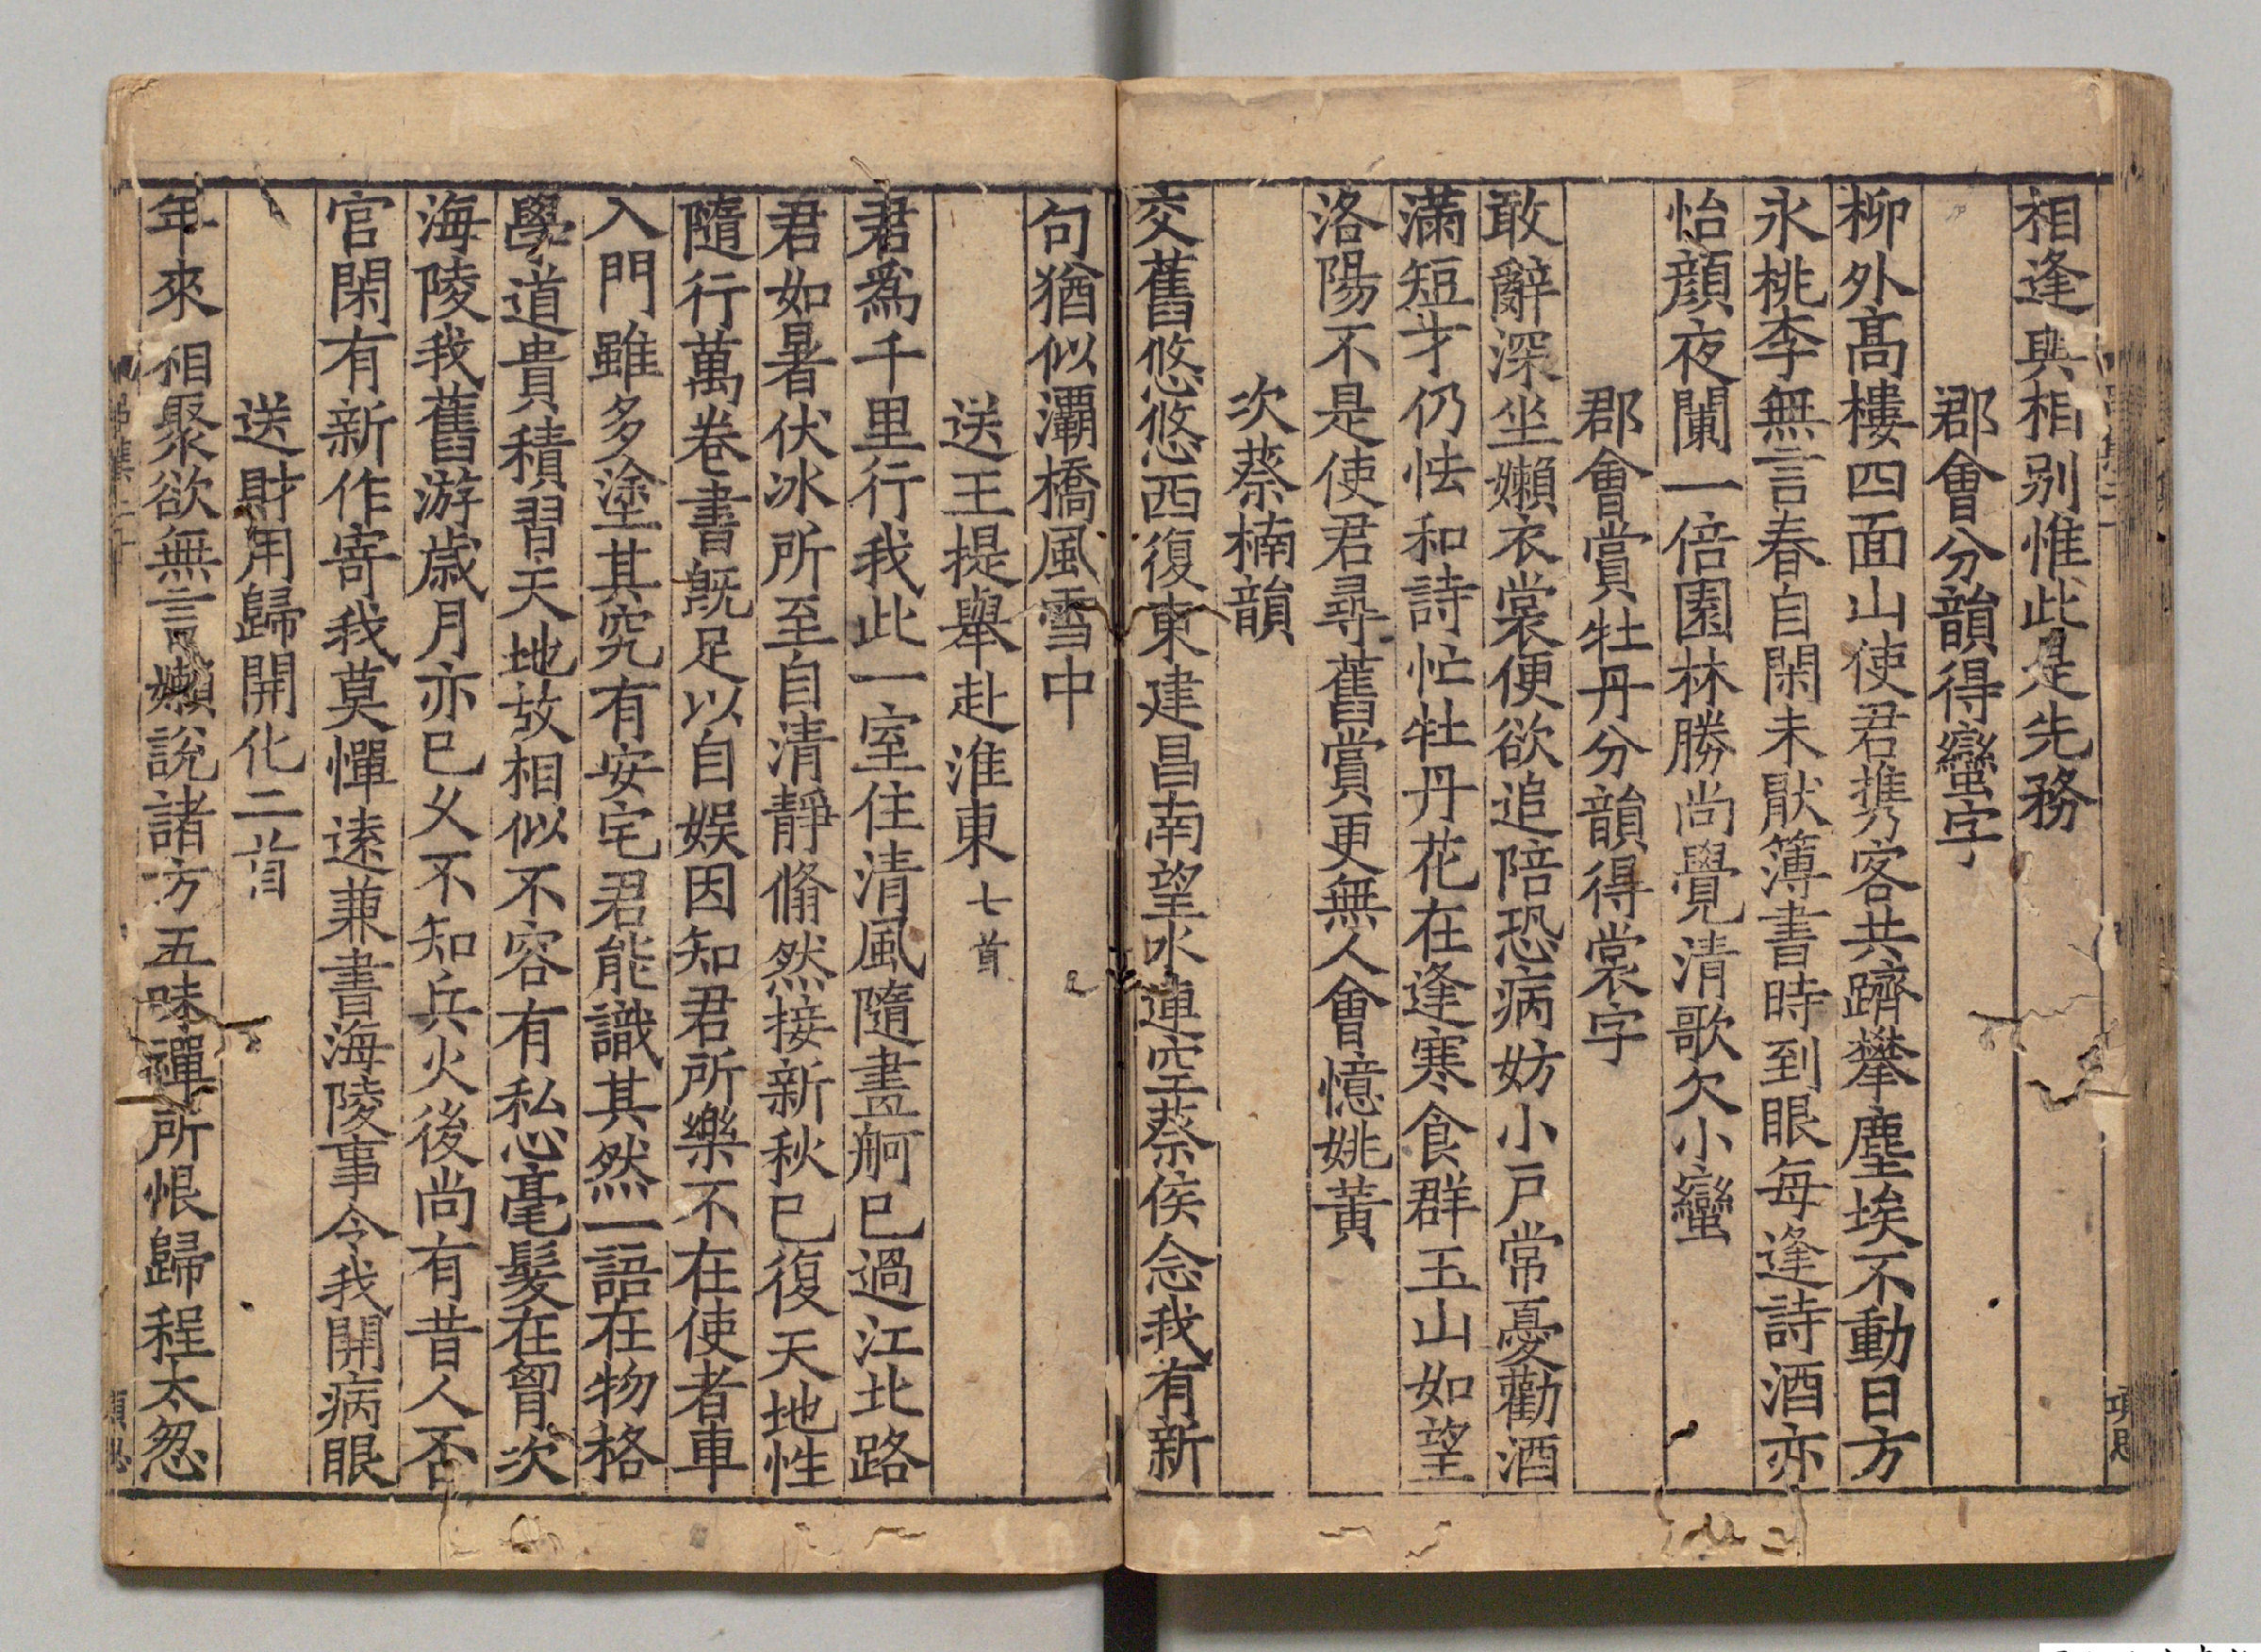 相逢與相别惟此是先務
郡會分韻得蠻字
柳外髙樓四面山使君携客共躋攀塵埃不動日方
永桃李無言春自閑未猒簿書時到眼每逢詩酒亦
怡顔夜闌一倍園林勝尚覺清歌欠小蠻
郡會賞牡丹分韻得裳字
敢辭深坐嬾衣裳便欲追陪恐病妨小戸常憂勸酒
滿短才仍怯和詩忙牡丹花在逢寒食群玉山如望
洛陽不是使君尋舊賞更無人會憶姚黃
次蔡楠韻
交舊悠悠西復東建昌南望水連空蔡侯念我有新
句猶似灞橋風雪中
送王提舉赴淮東七首
君爲千里行我此一室住清風隨畫舸巳過江北路
君如暑伏冰所至自清靜翛然接新秋巳復天地性
隨行萬卷書旣足以自娱因知君所樂不在使者車
入門雖多塗其究有安宅君能識其然一語在物格
學道貴積習天地故相似不容有私心毫髮在胷次
海陵我舊游歲月亦巳乆不知兵火後尚有昔人否
官閑有新作寄我莫憚逺兼書海陵事令我開病眼
送財用歸開化二首
年來相聚欲無言嬾說諸方五味禪所恨歸程太怱